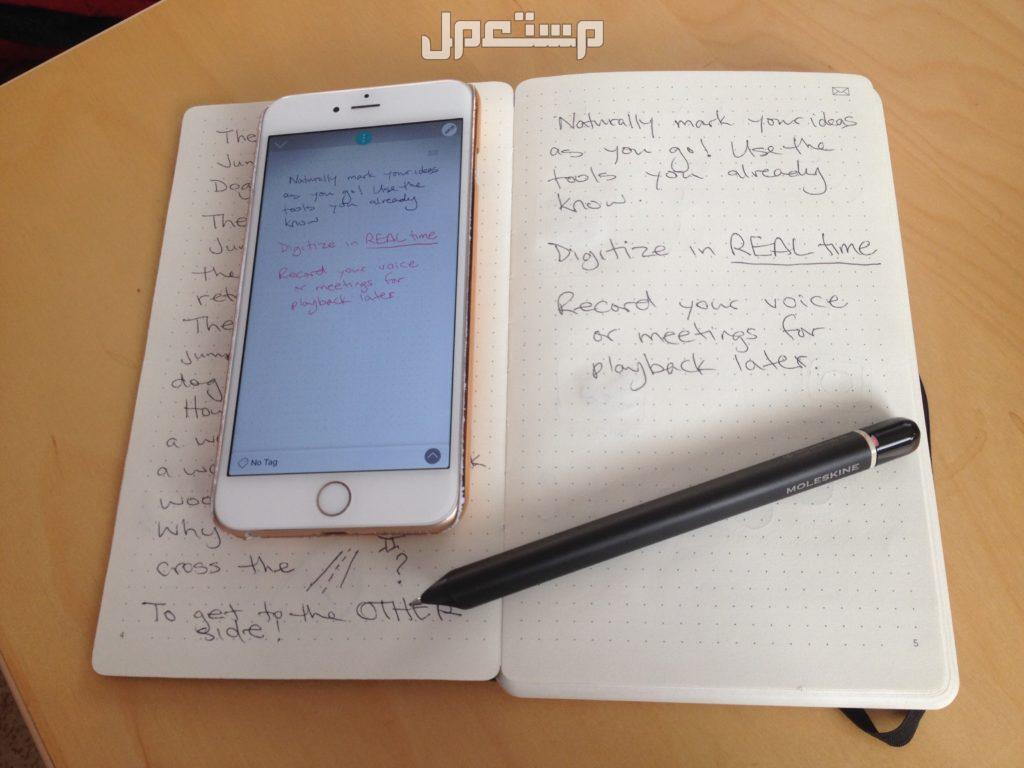 مستعمل
The
Jum
Dog
The
Ju
the
ret
The
jum
dog
How
a w
a wo k
woo
Why
cross the ?
To get to the OTHER
side!
4
Naturally mark your ideas
as you go! Use the
tools you already
know
Digitize in REAL time
Record your voice
or meetings for
playback later
No Tag
Naturally mark your ideas
as you go! Use the
tools you already
know.
Digitize in REAL time
Record your voice
or meetings for
playback later.
MOLESKINE
5